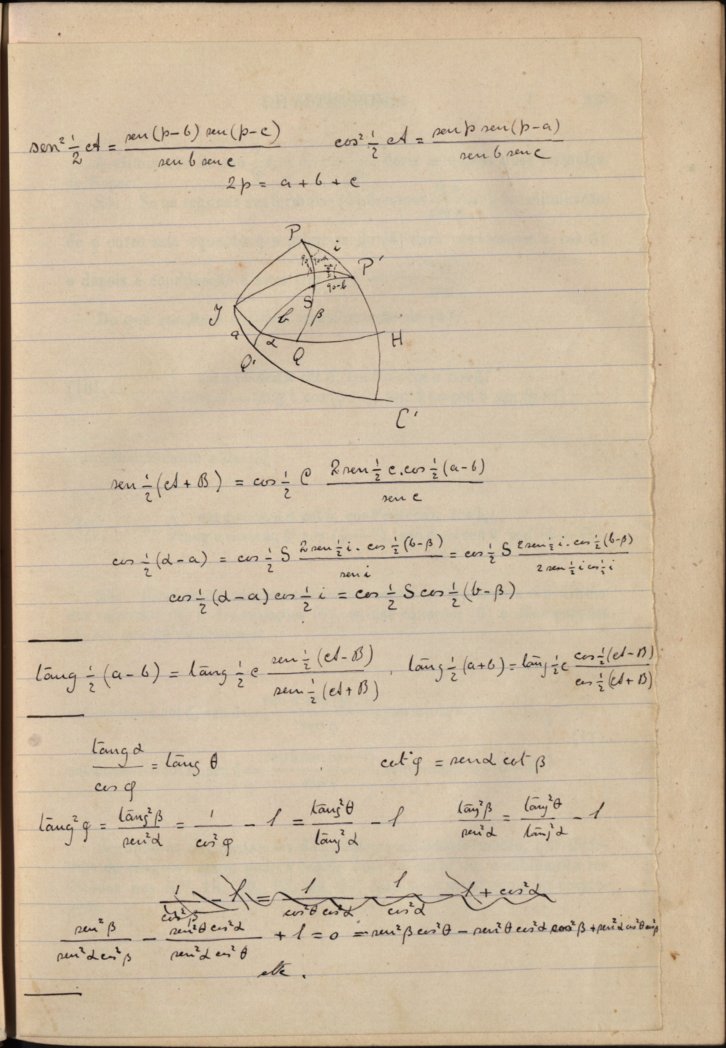 sen² ½ A = sen(p-b) sen(p-c) / sen b sen c    cos² ½ A = sen p sen(p-a) / sen b sen c
2p = a + b + c
P i
P'
90-b
S
γ b β
a α H
Q' Q
C'
sen ½ (A + B) = cos ½ C 2 sen ½ c . cos ½ (a-b) / sen c
cos ½ (α - a) = cos ½ S 2 sen ½ i . cos ½ (b-β) / sen i = cos ½ S 2 sen ½ i . cos ½ (b-β) / 2 sen ½ i cos ½ i
cos ½ (α - a) cos ½ i = cos ½ S cos ½ (b - β)
tang ½ (a - b) = tang ½ c sen ½ (A - B) / sen ½ (A + B) . tang ½ (a + b) = tang ½ c cos ½ (A - B) / cos ½ (A + B)
tang α / cos φ = tang θ    cot φ = sen α cot β
tang² φ = tang² β / sen² α = 1 / cos² φ - 1 = tang² θ / tang² α - 1    tang² β / sen² α = tang² θ / tang² α - 1
1 / cos² β - 1 = 1 / cos² θ cos² α - 1 / cos² α - 1 + cos² α
sen² β / sen² α cos² β - sen² θ cos² α / sen² α cos² θ + 1 = 0 = sen² β cos² θ - sen² θ cos² α cos² β + sen² α cos² θ cos² β
etc.